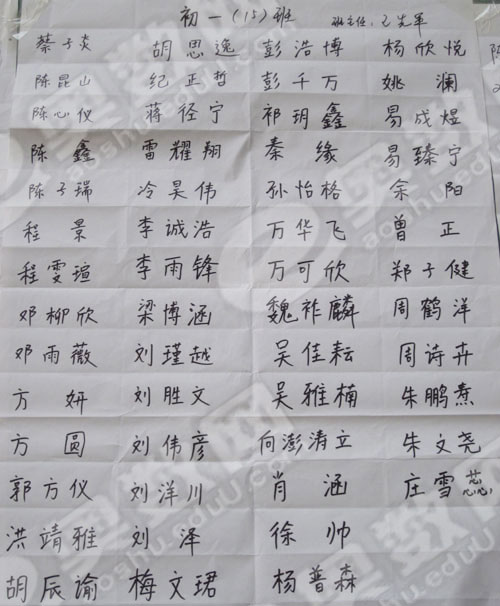 初一(15)班 班主任:乙先军
蔡子炎 胡思逸 彭浩博 杨欣悦
陈昆山 纪正哲 彭千万 姚澜
陈心仪 蒋径宁 祁玥鑫 易成煜
陈鑫 雷耀翔 秦缘 易臻宁
陈子瑞 冷昊伟 孙怡格 余阳
程景 李诚浩 万华飞 曾正
程雯瑄 李雨锋 万可欣 郑子健
邓柳欣 梁博涵 魏祚麟 周鹤洋
邓雨薇 刘瑾越 吴佳耘 周诗卉
方妍 刘胜文 吴雅楠 朱鹏焘
方圆 刘伟彦 向澎涛立 朱文尧
郭方仪 刘洋川 肖涵 庄雪蕊
洪靖雅 刘泽 徐帅
胡辰谕 梅文珺 杨普森
奥数网
aoshu.eduu.com